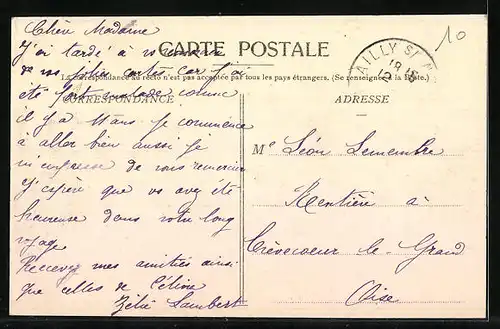 Chère Madame
J'ai tardé à vous
CARTE POSTALE
de vos jolies cartes car j'ai
La correspondance au recto n'est pas acceptée par tous les pays étrangers. (Se renseigner à la Poste.)
été fort malade comme
CORRESPONDANCE
il y a 11 ans je commence
à aller bien aussi je
m'empresse de vous remercier
J'espère que vs avez été
heureuse dans votre long
voyage
Recevez mes amitiés ainsi
que celles de Céline
Zélie Lambert
10
AILLY S/ N
18
12
ADRESSE
Me Léon Lemembre
Rentière à
Crèvecoeur le Grand
Oise